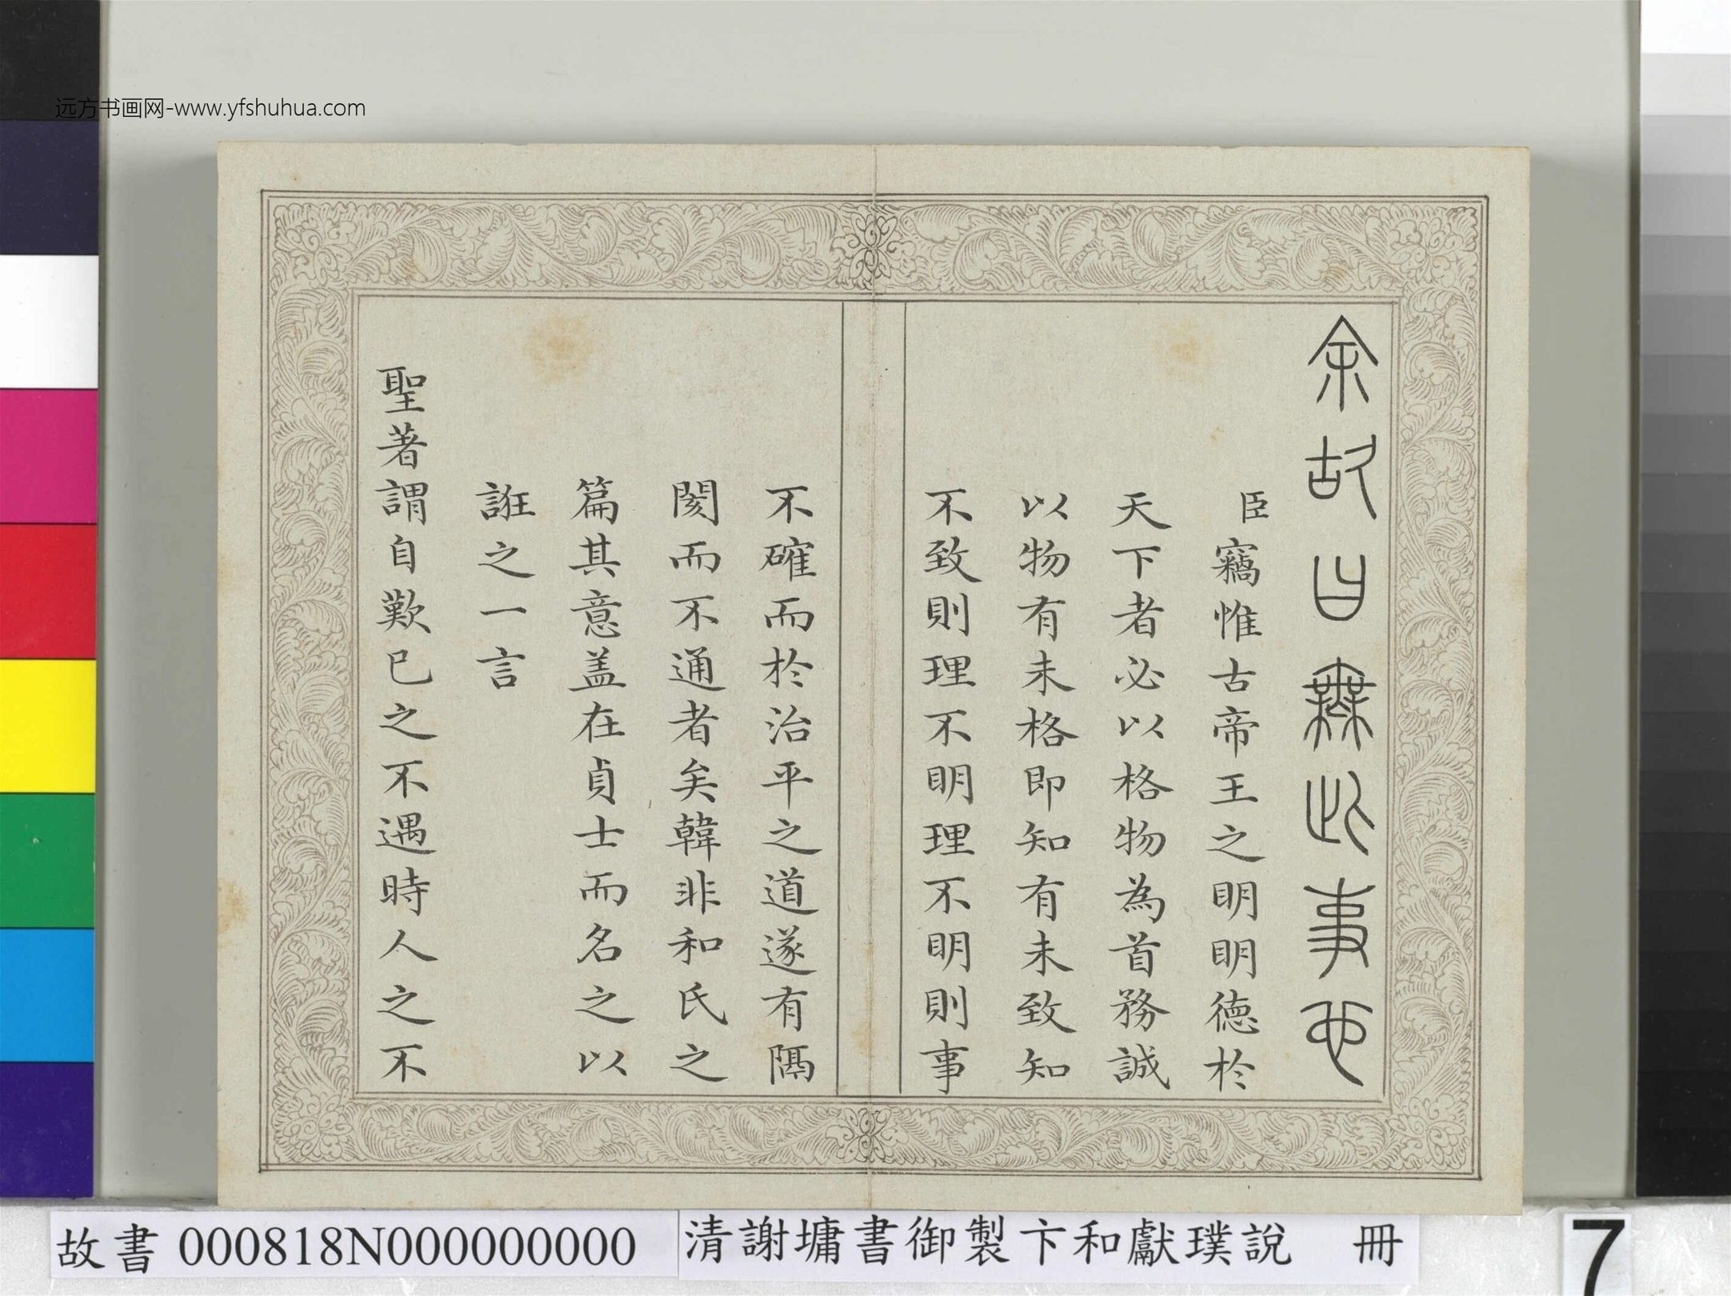 远方书画网-www.yfshuhua.com
余故曰無此事也
臣竊惟古帝王之明明德於
天下者必以格物為首務誠
以物有未格即知有未致知
不致則理不明理不明則事
不確而於治平之道遂有隔
閡而不通者矣韓非和氏之
篇其意盖在貞士而名之以
誑之一言
聖著謂自歎已之不遇時人之不
故書 000818N000000000
清謝墉書御製卞和獻璞說 冊
7